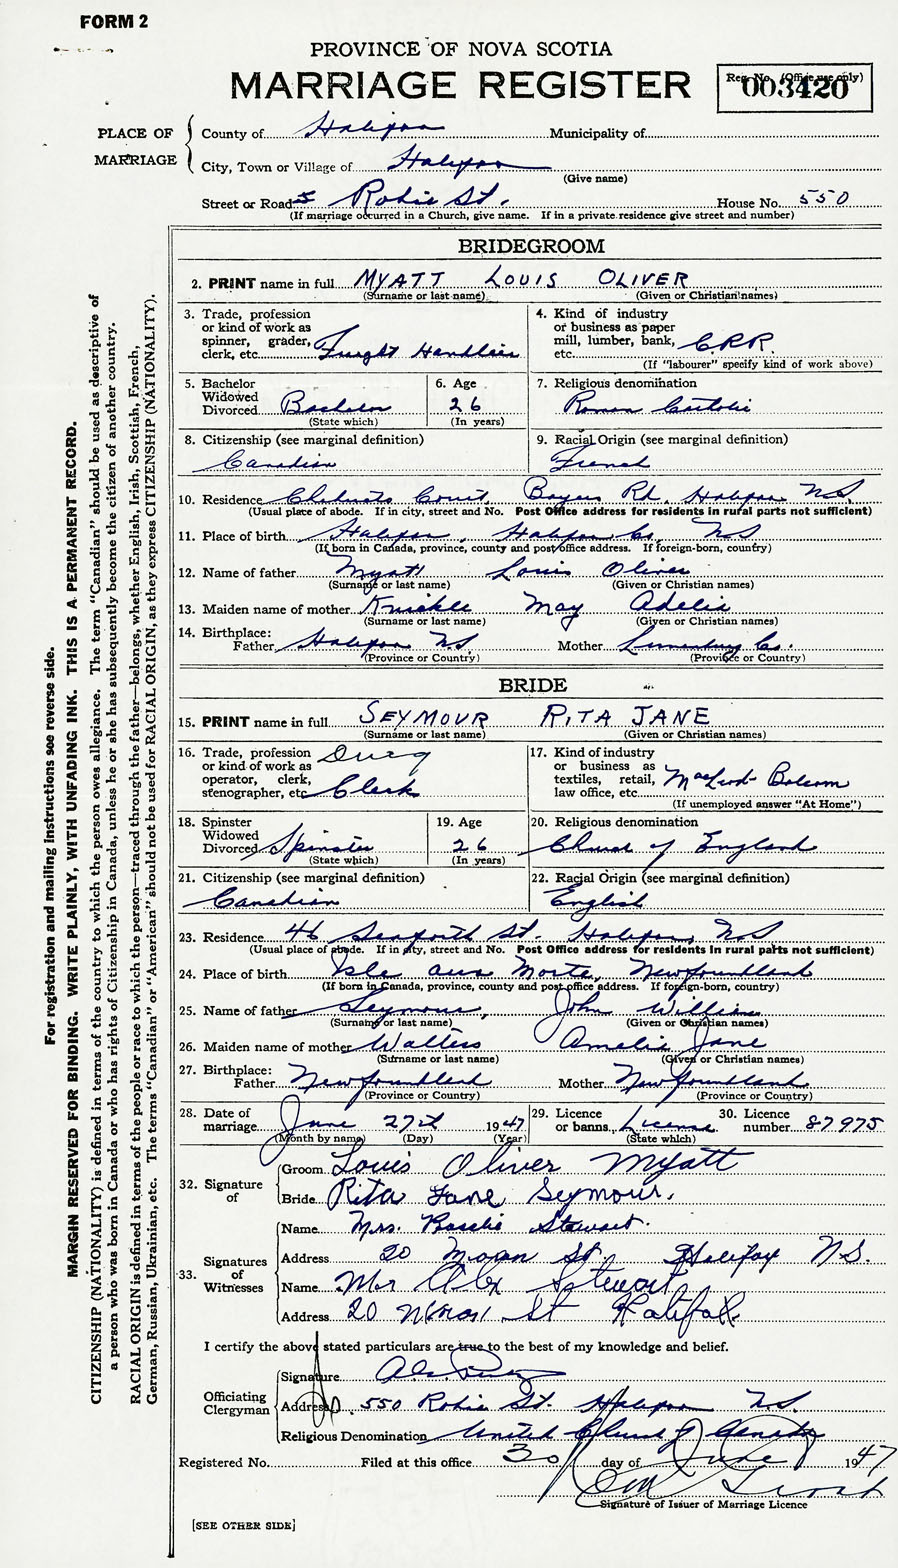 FORM 2
PROVINCE OF NOVA SCOTIA
MARRIAGE REGISTER
Reg. No. (Office use only)
003420
PLACE OF MARRIAGE
County of Halifax Municipality of
City, Town or Village of Halifax
(Give name)
Street or Road Robie St. House No. 550
(If marriage occurred in a Church, give name. If in a private residence give street and number)
BRIDEGROOM
2. PRINT name in full MYATT LOUIS OLIVER
(Surname or last name) (Given or Christian names)
3. Trade, profession or kind of work as spinner, grader, clerk, etc. Freight Handler
4. Kind of industry or business as paper mill, lumber, bank, etc. C.R.R.
(If "labourer" specify kind of work above)
5. Bachelor Widowed Divorced Bachelor
(State which)
6. Age 26
(In years)
7. Religious denomination
Roman Catholic
8. Citizenship (see marginal definition)
Canadian
9. Racial Origin (see marginal definition)
French
10. Residence Court, Bayers Rd. Halifax N.S.
(Usual place of abode. If in city, street and No. Post Office address for residents in rural parts not sufficient)
11. Place of birth Halifax, Halifax Co. N.S.
(If born in Canada, province, county and post office address. If foreign-born, country)
12. Name of father Myatt Louis Oliver
(Surname or last name) (Given or Christian names)
13. Maiden name of mother Knickle May Adelia
(Surname or last name) (Given or Christian names)
14. Birthplace:
Father Halifax N.S. Mother Lunenburg Co.
(Province or Country) (Province or Country)
BRIDE
15. PRINT name in full SEYMOUR RITA JANE
(Surname or last name) (Given or Christian names)
16. Trade, profession or kind of work as operator, clerk, stenographer, etc. Drug Clerk
17. Kind of industry or business as textiles, retail, law office, etc. MacLeod Balcom
(If unemployed answer "At Home")
18. Spinster Widowed Divorced Spinster
(State which)
19. Age 26
(In years)
20. Religious denomination
Church of England
21. Citizenship (see marginal definition)
Canadian
22. Racial Origin (see marginal definition)
English
23. Residence 46 Seaforth St. Halifax, N.S.
(Usual place of abode. If in city, street and No. Post Office address for residents in rural parts not sufficient)
24. Place of birth Isle aux Morte, Newfoundland
(If born in Canada, province, county and post office address. If foreign-born, country)
25. Name of father Seymour, John William
(Surname or last name) (Given or Christian names)
26. Maiden name of mother Walters Amelia Jane
(Surname or last name) (Given or Christian names)
27. Birthplace:
Father Newfoundland Mother Newfoundland
(Province or Country) (Province or Country)
28. Date of marriage June 27th 1947
(Month by name) (Day) (Year)
29. Licence or banns License
(State which)
30. Licence number 87975
32. Signature of
Groom Louis Oliver Myatt
Bride Rita Jane Seymour.
33. Signatures of Witnesses
Name Mrs. Stewart.
Address 20 St. Halifax N.S.
Name Mr Alex Stewart
Address 20 St Halifax
I certify the above stated particulars are true to the best of my knowledge and belief.
Officiating Clergyman
Signature
Address 550 Robie St. Halifax N.S.
Religious Denomination United Church of Canada
Registered No. Filed at this office 30 day of June 1947
Signature of Issuer of Marriage Licence
[SEE OTHER SIDE]
For registration and mailing instructions see reverse side.
MARGIN RESERVED FOR BINDING. WRITE PLAINLY, WITH UNFADING INK. THIS IS A PERMANENT RECORD.
CITIZENSHIP (NATIONALITY) is defined in terms of the country to which the person owes allegiance. The term "Canadian" should be used as descriptive of
a person who was born in Canada or who has rights of Citizenship in Canada, unless he or she has subsequently become the citizen of another country.
RACIAL ORIGIN is defined in terms of the people or race to which the person—traced through the father—belongs, whether English, Irish, Scottish, French,
German, Russian, Ukrainian, etc. The terms "Canadian" or "American" should not be used for RACIAL ORIGIN, as they express CITIZENSHIP (NATIONALITY).